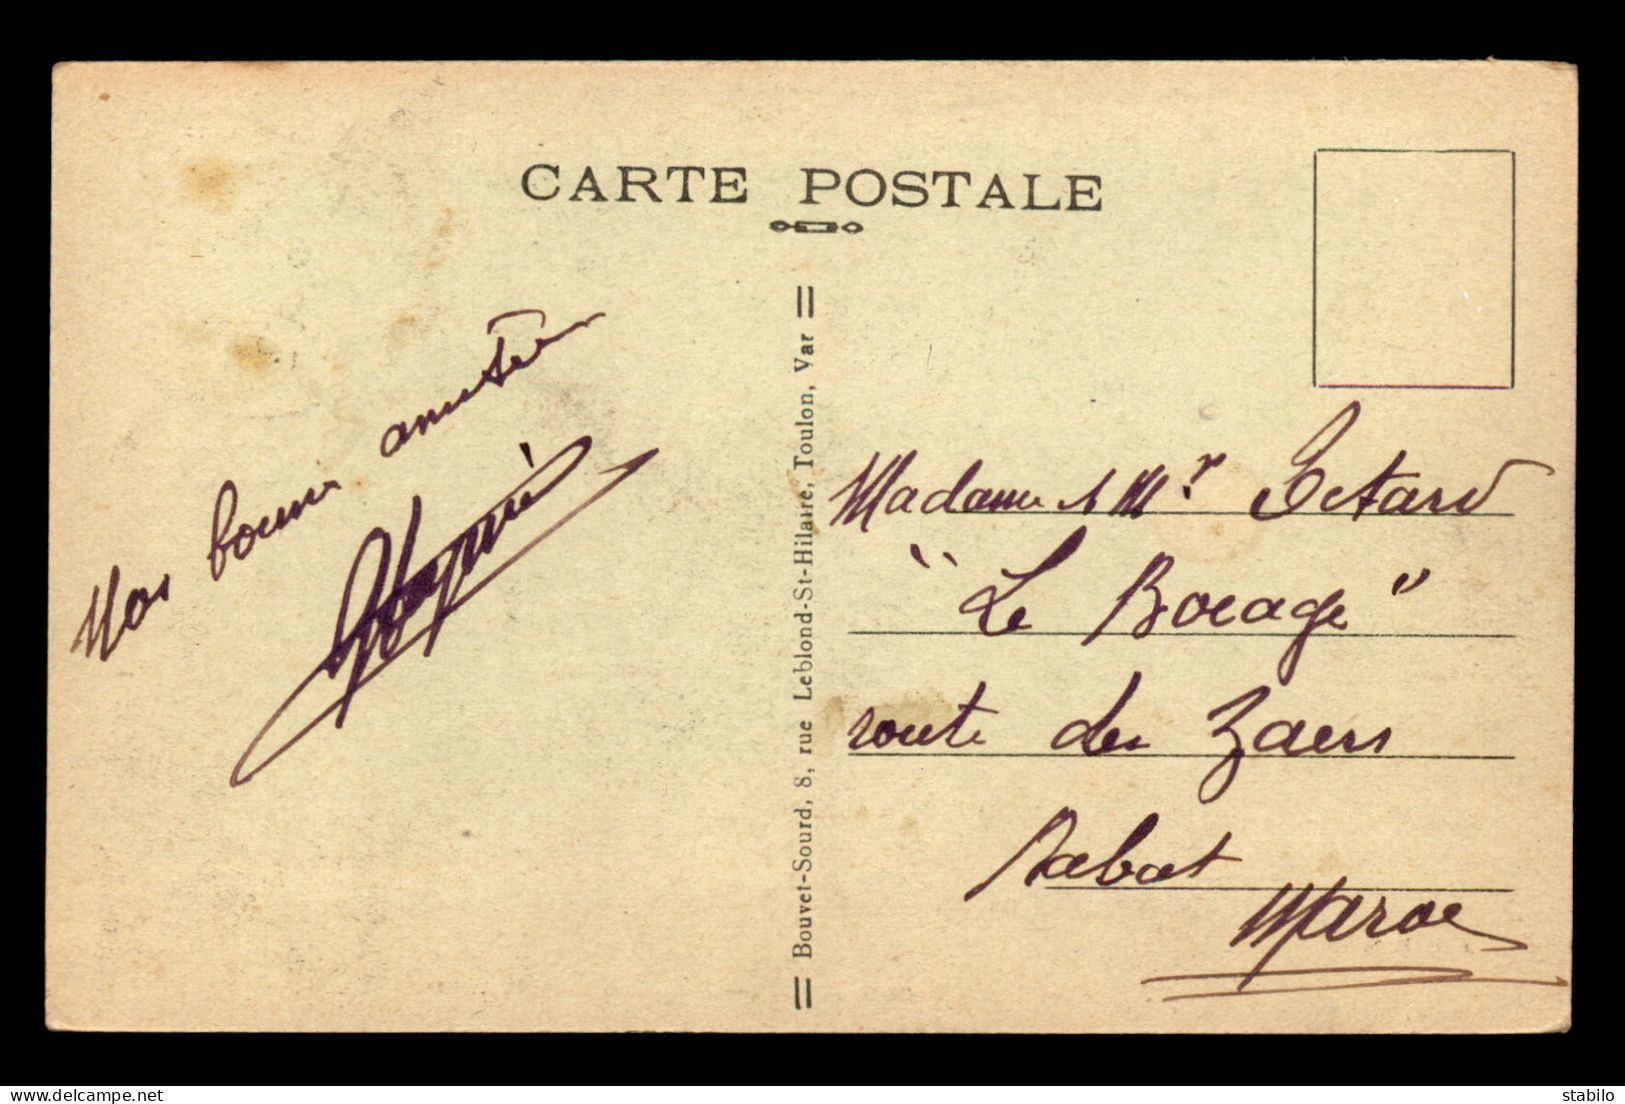 CARTE POSTALE
Nos bonnes amitiés
Bouvet-Sourd, 8, rue Leblond-St-Hilaire, Toulon, Var
Madame & Mr
"Le Bocage"
route des Zaers
Rabat
Maroc
delcampe.net
stabilo